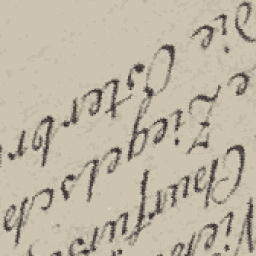 die Osterbr
e Ziegelsch
Churfürs